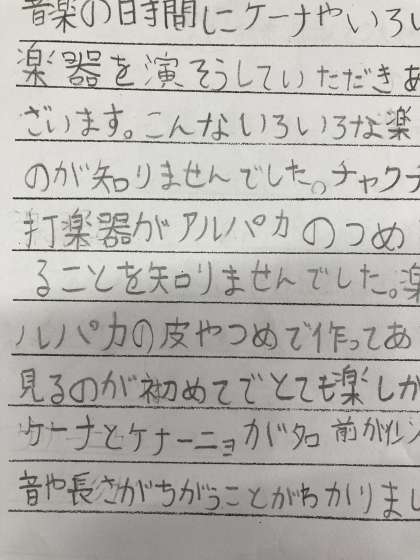 音楽の時間にケーナやいろい
楽器を演そうしていただきあ
ざいます。こんないろいろな楽
のが知りませんでした。チャクチ
打楽器がアルパカのつめ
ることを知りませんでした。楽
ルパカの皮やつめで作ってあ
見るのが初めてでとても楽しか
ケーナとケナーニョがタロ 前がにン
音や長さがちがうことがわかりまし